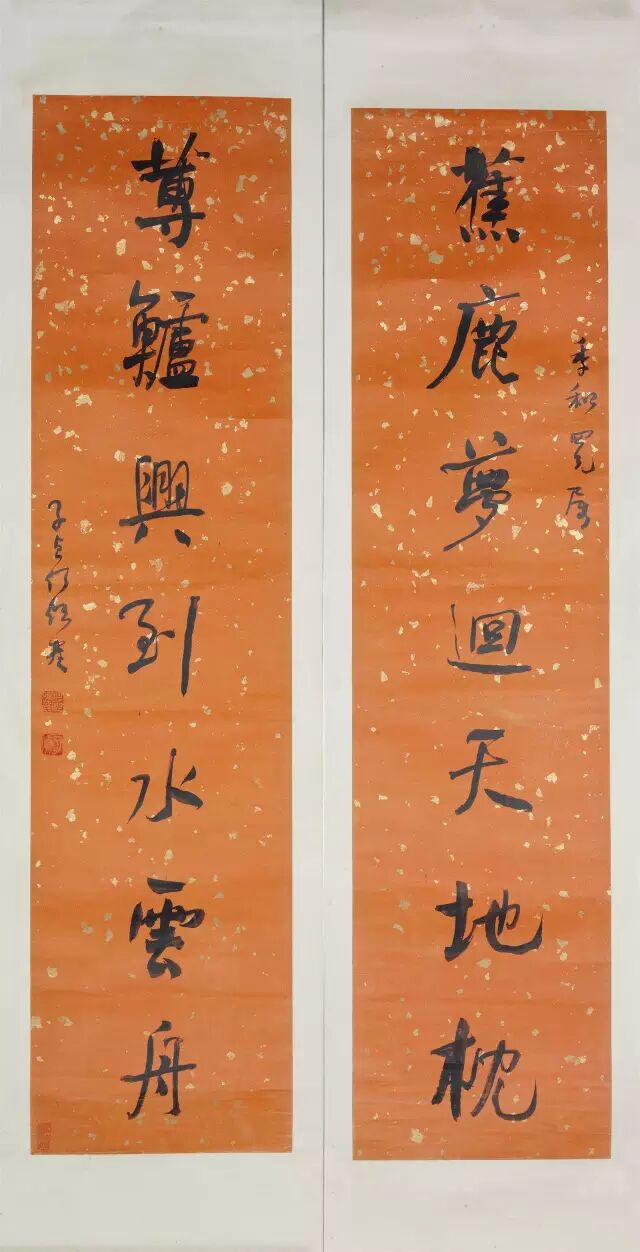 蕉鹿夢迴天地枕
季和四兄屬
蓴鱸興到水雲舟
子貞何紹基